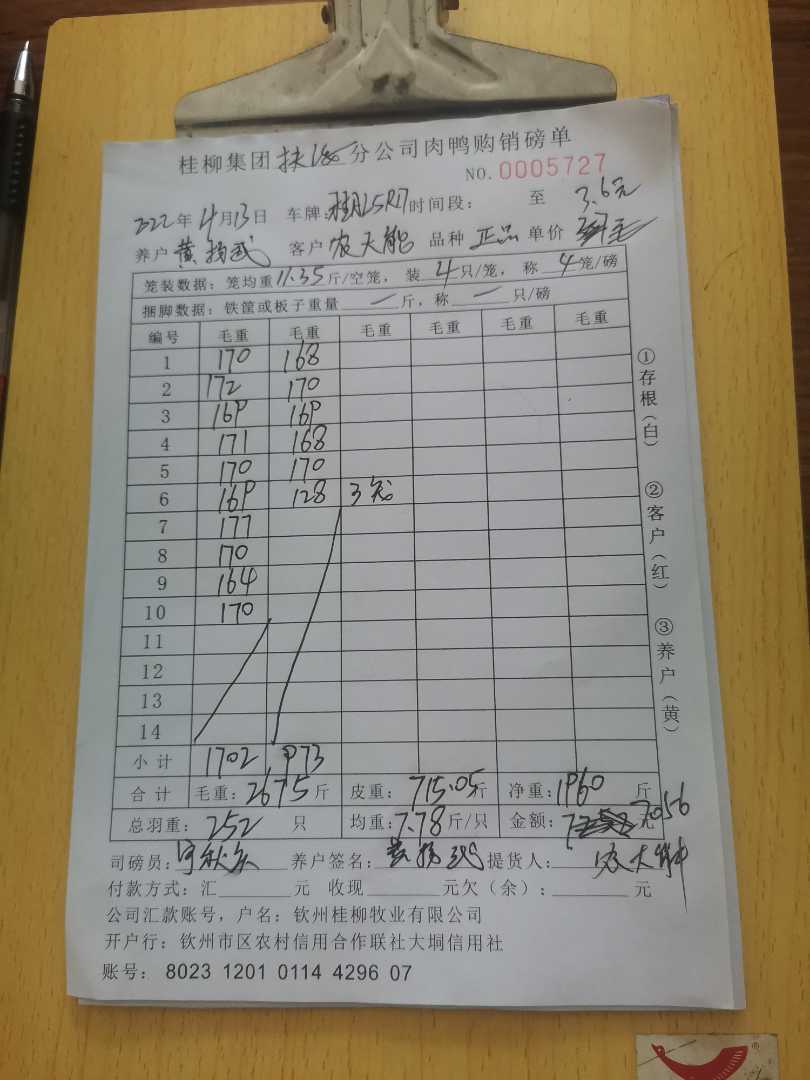 桂柳集团 扶 分公司肉鸭购销磅单
NO. 0005727
2022年4月13日 车牌: 时间段: 至 3.6元
养户 黄扬武 客户 农天能 品种 正品 单价
笼装数据: 笼均重 11.35 斤/空笼, 装 4 只/笼, 称 4 笼/磅
捆脚数据: 铁筐或板子重量 — 斤, 称 — 只/磅
编号 毛重 毛重 毛重 毛重 毛重 毛重
1 170 168
2 172 170
3 169 169
4 171 168
5 170 170
6 169 128 3笼
7 177
8 170
9 164
10 170
11
12
13
14
小计 1702 973
合计 毛重: 2675 斤 皮重: 715.05 斤 净重: 1960 斤
总羽重: 252 只 均重: 7.78 斤/只 金额: 7056 元
司磅员: 养户签名: 黄扬武 提货人: 农天能
付款方式: 汇 元 收现 元欠(余): 元
公司汇款账号, 户名: 钦州桂柳牧业有限公司
开户行: 钦州市区农村信用合作联社大垌信用社
账号: 8023 1201 0114 4296 07
①存根(白) ②客户(红) ③养户(黄)